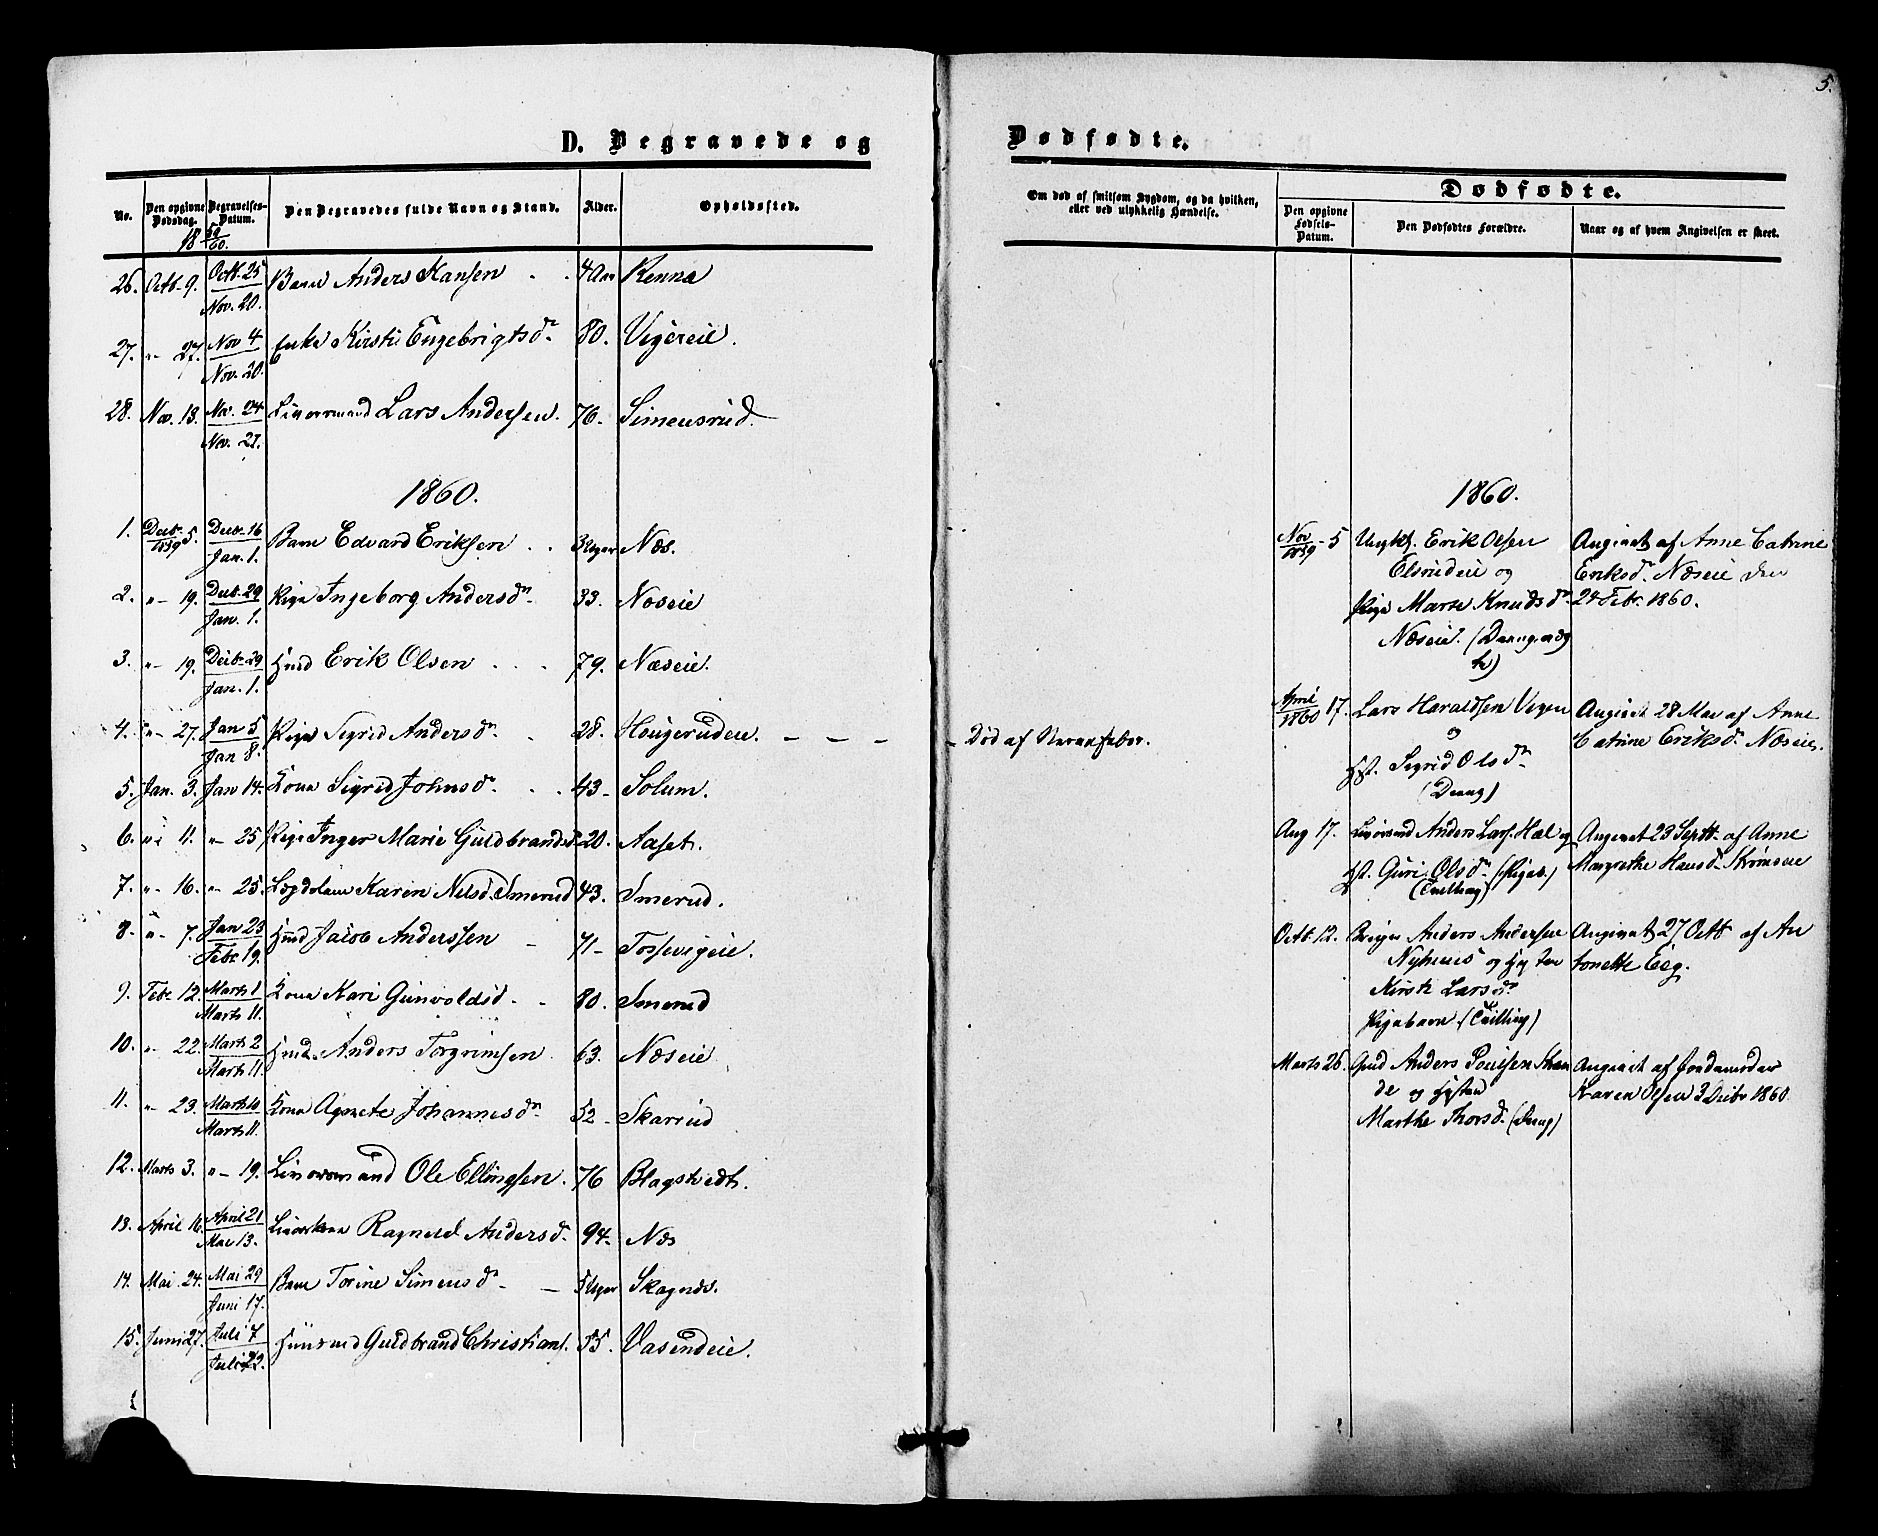 5.
D. Begravede og Dødfødte.
No.
Den opgivne Dødsdag.
Begravelses-Datum.
Den Begravedes fulde Navn og Stand.
Alder.
Opholdssted.
18 59/60.
26. Octb. 9. Octb. 25 / Nov. 20. Barn Anders Hansen 4 Aar Renna
27. " 27. Nov 4 / Nov. 20. Enke Kirsti Engebrigtsdr. 80. Vigereie.
28. Nov. 13. Nov. 24 / Nov. 27. Livørmand Lars Andersen. 76. Simensrud.
1860.
1. Decb. 1859 5. Decb. 16 / Jan. 1. Barn Edvard Eriksen 3 Uger Næs.
2. " 19. Decb. 29 / Jan. 1. Pige Ingeborg Andersdr. 33. Næseie
3. " 19. Decb. 29 / Jan. 1. Hmd Erik Olsen 79. Næseie.
4. " 27. Jan 5 / Jan 8. Pige Sigrid Andersdr 28. Hougerudeie.
5. Jan. 3. Jan 14. Kone Sigrid Johnsd. 43 Solum.
6. " 11. " 25 Pige Inger Marie Guldbrandsd 20. Aaset.
7. " 16. " 25. Karen Nilsd. Smerud 43. Smerud.
8. " 7. Jan 23 / Febr 19. Hmd Jacob Anderssen 71 Tossevigeie.
9. Febr 12. Marts 1 / Marts 11. Kone Kari Gunvoldsd. 80. Smerud
10. " 22. Marts 2 / Marts 11. Hmd. Anders Torgrimsen 63. Næseie
11. " 23. Marts 10 / Marts 11. Kone Agnete Johannesdr. 52 Skarrud
12. Marts 3. " 19. Livørmand Ole Ellingsen. 76 Blagstvedt.
13. April 16. April 21 / Mai 13. Ragnild Andersdr. 94. Næs
14. Mai 24. Mai 29 / Juni 17. Barn Torine Simensdr 5 Uger Skagnæs.
15. Juni 27. Juli 7 / Juli 22. Huusmd Guldbrand Christians. 55. Vasendeie.
Om død af smitsom Sygdom, og da hvilken,
eller ved ulykkelig Hændelse.
Død af Nervefeber.
Dødfødte.
Den opgivne Fødsels-Datum.
Den Dødfødtes Forældre.
Naar og af hvem Angivelsen er skeet.
1860.
Nov 1859 5 Ungk. Erik Olsen Angivet af Anne Catrine
Elsrudeie og Eriksdr. Næseie den
Pige Marte Knudsdr. 24 Febr. 1860.
Næseie.
April 1860 17. Lars Haraldsen Vegen Angivet 28 Mai af Anne
og Catrine Eriksdr. Næseie.
Hst. Sigrid Olsdr.
(Dreng)
Aug 17. Anders Lars. Hæl og Angivet 23 Septt. af Anne
Hst. Guri Olsdr. (Pigeb.) Margrethe Hansd.
(Tvilling)
Octb. 12. Anders Andersen Angivet 27 Octb af An
Nyhuus og tonette Eeg.
Kirsti Larsdr
Pigebarn (Tvilling)
Marts 26. Gmd Anders Poulsen Stran Angivet af Jordemoder
de og Hustru Karen Olsen 3 Decbr 1860.
Marthe Thorsd. (Dreng)